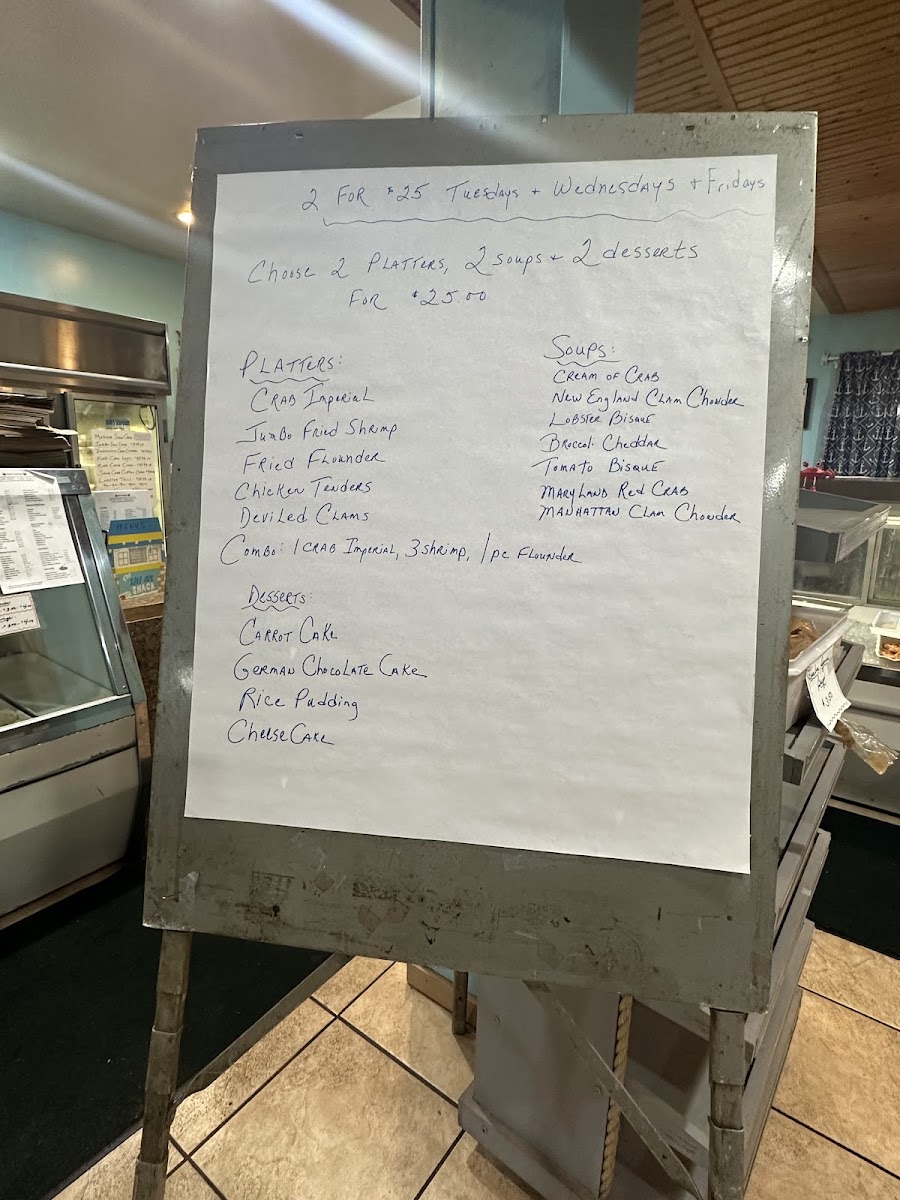 2 FOR $25 TUESDAYS + WEDNESDAYS + FRIDAYS
CHOOSE 2 PLATTERS, 2 SOUPS + 2 desserts
FOR $25.00
PLATTERS:
CRAB IMPERIAL
JUMBO FRIED SHRIMP
FRIED FLOUNDER
CHICKEN TENDERS
DEVILED CLAMS
COMBO: 1 CRAB IMPERIAL, 3 SHRIMP, 1 pc FLOUNDER
SOUPS:
CREAM OF CRAB
NEW ENGLAND CLAM CHOWDER
LOBSTER BISQUE
BROCCOLI CHEDDAR
TOMATO BISQUE
MARYLAND RED CRAB
MANHATTAN CLAM CHOWDER
DESSERTS:
CARROT CAKE
GERMAN CHOCOLATE CAKE
RICE PUDDING
CHEESECAKE
MENUS